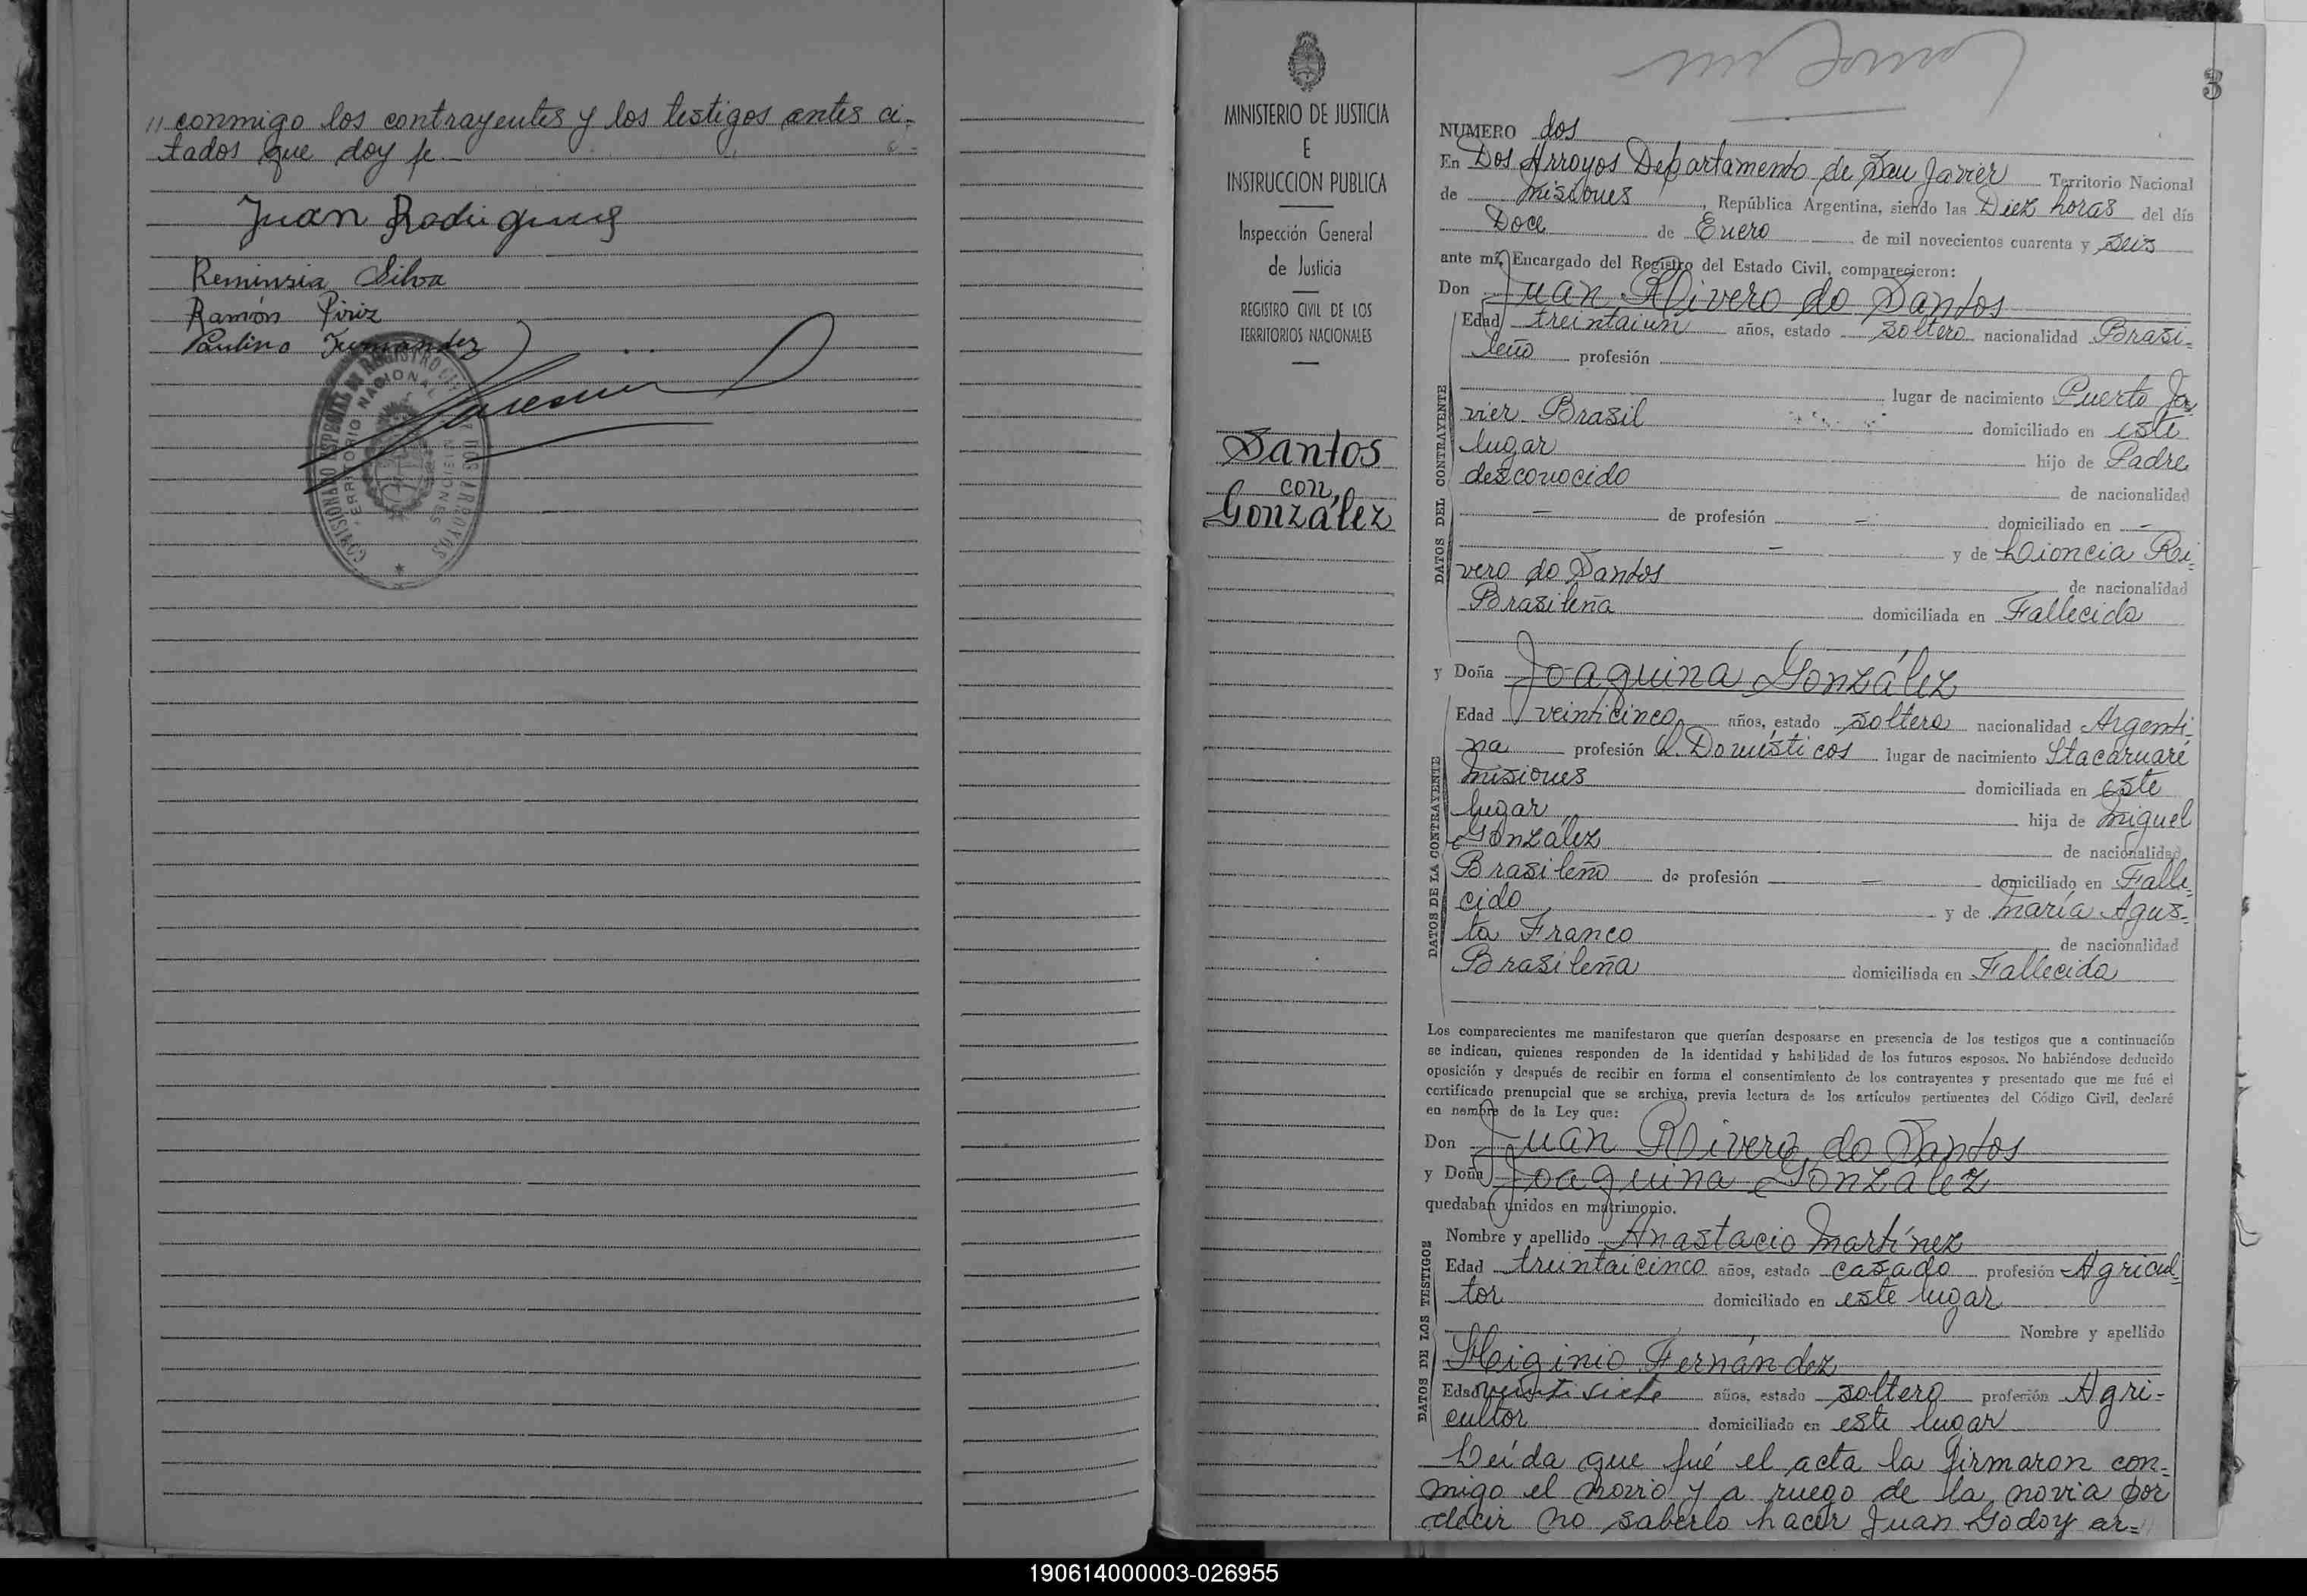 // conmigo los contrayentes y los testigos antes ci-
tados que doy fe.
Juan Rodrigues
Reminsia Silva
Ramón Piriz
Paulino Fernandez
COMISIONADO ESPECIAL DEL REGISTRO CIVIL DOS ARROYOS
TERRITORIO NACIONAL MISIONES
MINISTERIO DE JUSTICIA
E
INSTRUCCION PUBLICA
Inspección General
de Justicia
REGISTRO CIVIL DE LOS
TERRITORIOS NACIONALES
Santos
con
González
3
NUMERO dos
En Dos Arroyos Departamento de San Javier Territorio Nacional
de Misiones, República Argentina, siendo las Diez horas del día
Doce de Enero de mil novecientos cuarenta y seis
ante mí, Encargado del Registro del Estado Civil, comparecieron:
Don Juan Rivero do Santos
DATOS DEL CONTRAYENTE
Edad treintaiun años, estado soltero nacionalidad Brasi-
leño profesión
lugar de nacimiento Puerto Ja-
vier Brasil domiciliado en este
lugar hijo de Padre
desconocido de nacionalidad
— de profesión — domiciliado en —
— y de Lioncia Ri-
vero do Santos de nacionalidad
Brasileña domiciliada en Fallecida
y Doña Joaquina González
DATOS DE LA CONTRAYENTE
Edad veinticinco años, estado soltera nacionalidad Argenti-
na profesión Q. Domésticos lugar de nacimiento Itacaruaré
Misiones domiciliada en este
lugar hija de Miguel
González de nacionalidad
Brasileño de profesión — domiciliado en Falle-
cido y de María Agus-
ta Franco de nacionalidad
Brasileña domiciliada en Fallecida
Los comparecientes me manifestaron que querían desposarse en presencia de los testigos que a continuación
se indican, quienes responden de la identidad y habilidad de los futuros esposos. No habiéndose deducido
oposición y después de recibir en forma el consentimiento de los contrayentes y presentado que me fué el
certificado prenupcial que se archiva, previa lectura de los artículos pertinentes del Código Civil, declaré
en nombre de la Ley que:
Don Juan Rivero do Santos
y Doña Joaquina González
quedaban unidos en matrimonio.
DATOS DE LOS TESTIGOS
Nombre y apellido Anastacio Martínez
Edad treintaicinco años, estado casado profesión Agricul-
tor domiciliado en este lugar
Nombre y apellido
Higinio Fernández
Edad veintisiete años, estado soltero profesión Agri-
cultor domiciliado en este lugar
Leída que fué el acta la firmaron con-
migo el novio y a ruego de la novia por
decir no saberlo hacer Juan Godoy ar-//
190614000003-026955